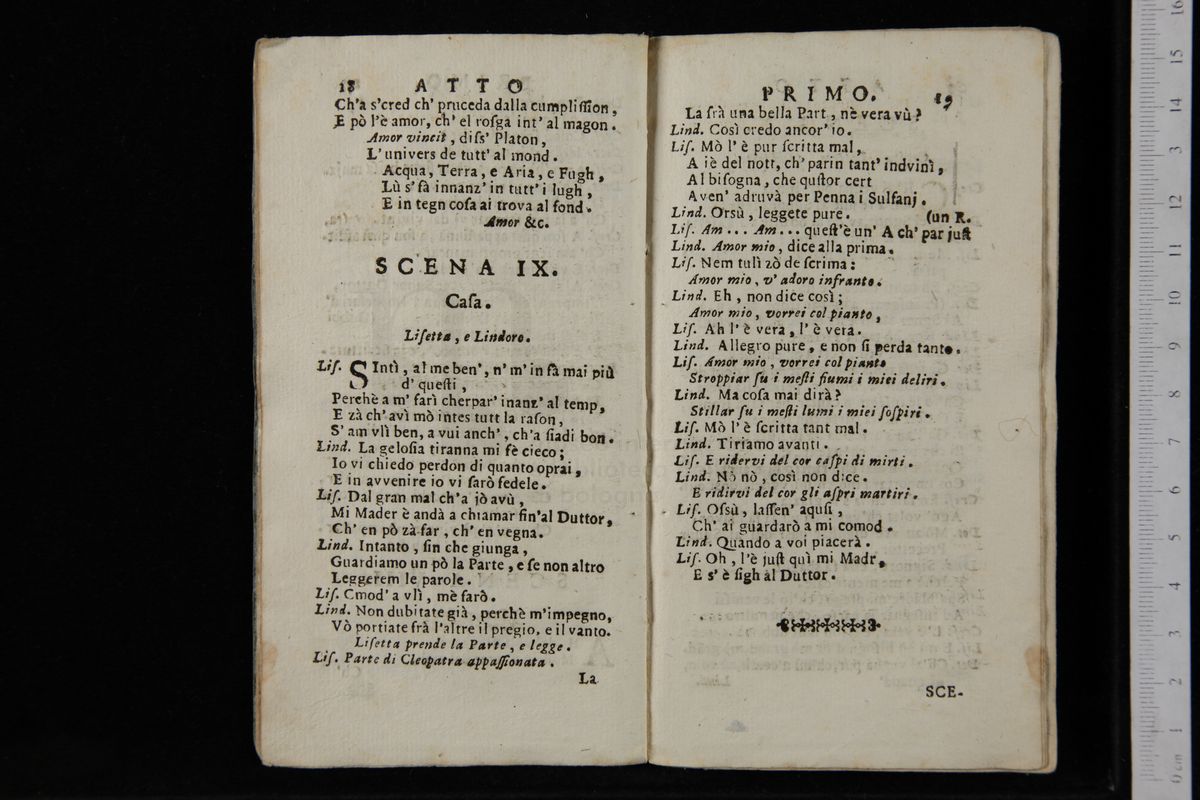 18 ATTO
Ch'a s'cred ch' pruceda dalla cumpliſſion,
E pò l'è amor, ch' el roſga int' al magon.
Amor vincit, diſs' Platon,
L' univers de tutt' al mond.
Acqua, Terra, e Aria, e Fugh,
Lù s' fà innanz' in tutt' i lugh,
E in tegn coſa ai trova al fond.
Amor &c.
SCENA IX.
Caſa.
Liſetta, e Lindoro.
Liſ. SIntì, al me ben', n' m' in fà mai più
d' queſti,
Perchè a m' farì cherpar' inanz' al temp,
E zà ch' avì mò intes tutt la raſon,
S' am vlì ben, a vui anch', ch'a ſiadi bon.
Lind. La geloſia tiranna mi fè cieco;
Io vi chiedo perdon di quanto oprai,
E in avvenire io vi ſarò fedele.
Liſ. Dal gran mal ch'a jò avù,
Mi Mader è andà a chiamar fin'al Duttor,
Ch' en pò zà far, ch' en vegna.
Lind. Intanto, fin che giunga,
Guardiamo un pò la Parte, e ſe non altro
Leggerem le parole.
Liſ. Cmod' a vlì, mè farò.
Lind. Non dubitate già, perchè m'impegno,
Vò portiate frà l'altre il pregio, e il vanto.
Liſetta prende la Parte, e legge.
Liſ. Parte di Cleopatra appaſſionata.
La
PRIMO. 19
La frà una bella Part, nè vera vù?
Lind. Così credo ancor' io.
Liſ. Mò l' è pur ſcritta mal,
A iè del nott, ch' parin tant' indvinì,
Al biſogna, che quſtor cert
Aven' adruvà per Penna i Sulfanj.
Lind. Orsù, leggete pure. (un R.
Liſ. Am ... Am ... queſt'è un' A ch' par juſt
Lind. Amor mio, dice alla prima.
Liſ. Nem tulì zò de ſcrima:
Amor mio, v' adoro infranto.
Lind. Eh, non dice così;
Amor mio, vorrei col pianto,
Liſ. Ah l' è vera, l' è vera.
Lind. Allegro pure, e non ſi perda tanto.
Liſ. Amor mio, vorrei col pianto
Stroppiar ſu i meſti fiumi i miei deliri.
Lind. Ma coſa mai dirà?
Stillar ſu i meſti lumi i miei ſoſpiri.
Liſ. Mò l' è ſcritta tant mal.
Lind. Tiriamo avanti.
Liſ. E ridervi del cor caſpi di mirti.
Lind. Nò nò, così non dice.
E ridirvi del cor gli aſpri martiri.
Liſ. Ofsù, laſſen' aquſi,
Ch' ai guardarò a mi comod.
Lind. Quando a voi piacerà.
Liſ. Oh, l'è juſt quì mi Madr,
E s' è ſigh al Duttor.
SCE-